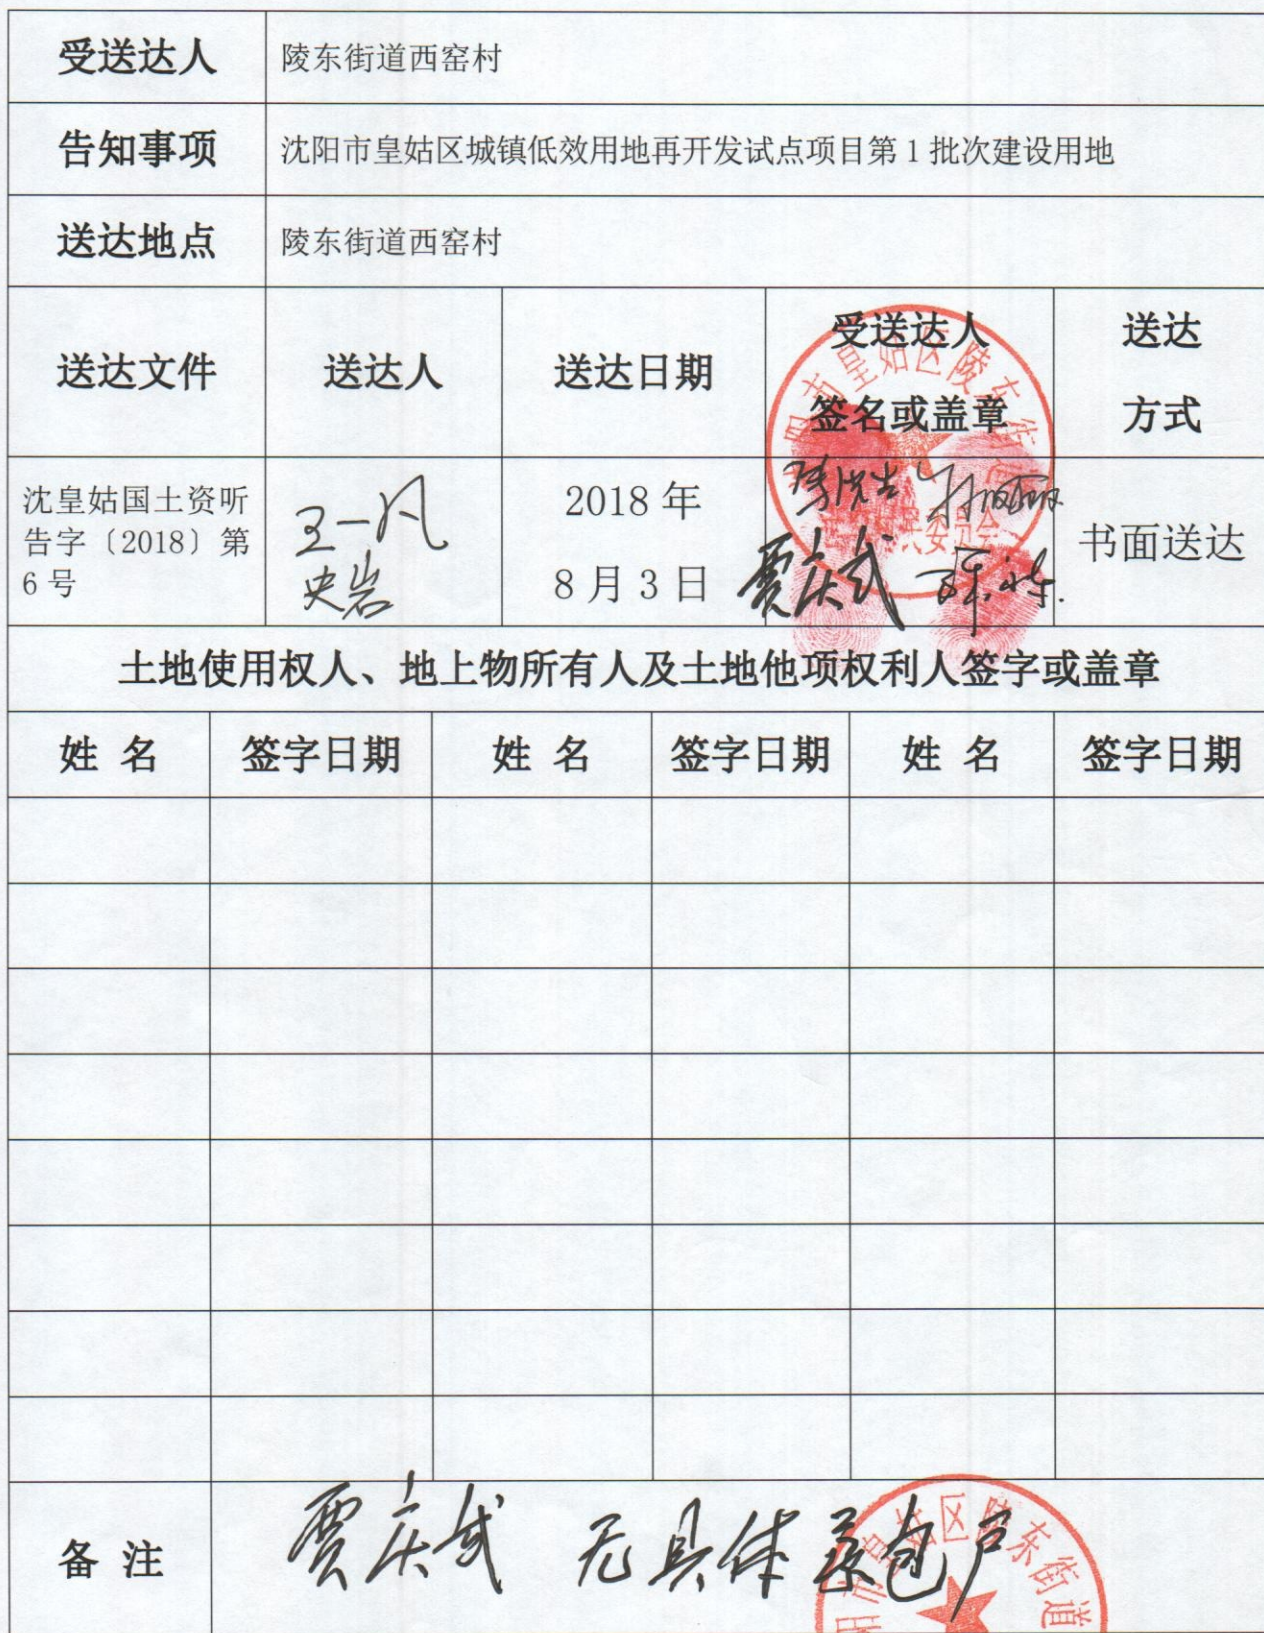 受送达人 陵东街道西窑村
告知事项 沈阳市皇姑区城镇低效用地再开发试点项目第1批次建设用地
送达地点 陵东街道西窑村
送达文件 送达人 送达日期 受送达人签名或盖章 送达方式
沈皇姑国土资听
告字〔2018〕第
6号
王一凡
史岩
2018年
8月3日
贾庆武
书面送达
土地使用权人、地上物所有人及土地他项权利人签字或盖章
姓 名 签字日期 姓 名 签字日期 姓 名 签字日期
备 注 贾庆武 无具体承包户
阳市皇姑区陵东街道